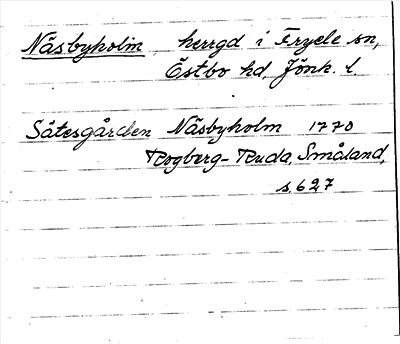 Näsbyholm herrgd i Fryele sn,
Östbo hd, Jönk. l.
Sätesgården Näsbyholm 1770
Rogberg-Ruda, Småland,
s. 627